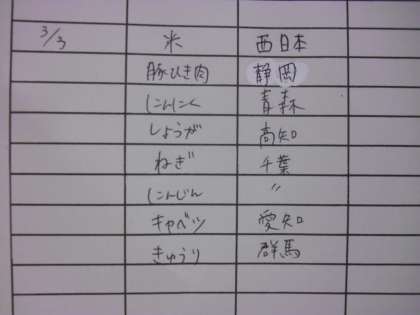 3/3 米 西日本
豚ひき肉 静岡
にんにく 青森
しょうが 高知
ねぎ 千葉
にんじん 〃
キャベツ 愛知
きゅうり 群馬